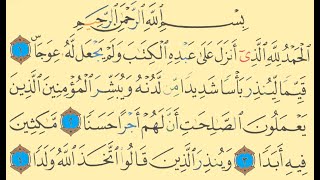 بِسْمِ اللَّهِ الرَّحْمَنِ الرَّحِيمِ
الْحَمْدُ لِلَّهِ الَّذِي أَنزَلَ عَلَى عَبْدِهِ الْكِتَبَ وَلَمْ يَجْعَل لَّهُ عِوَجَا ١
قَيِّمًا لِّيُنذِرَ بَأْسًا شَدِيدًا مِّن لَّدُنْهُ وَيُبَشِّرَ الْمُؤْمِنِينَ الَّذِينَ
يَعْمَلُونَ الصَّلِحَتِ أَنَّ لَهُمْ أَجْرًا حَسَنًا ٢ مَّكِثِينَ
فِيهِ أَبَدًا ٣ وَيُنذِرَ الَّذِينَ قَالُوا اتَّخَذَ اللَّهُ وَلَدًا ٤